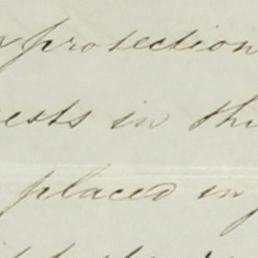 protection
ests in thi
placed in